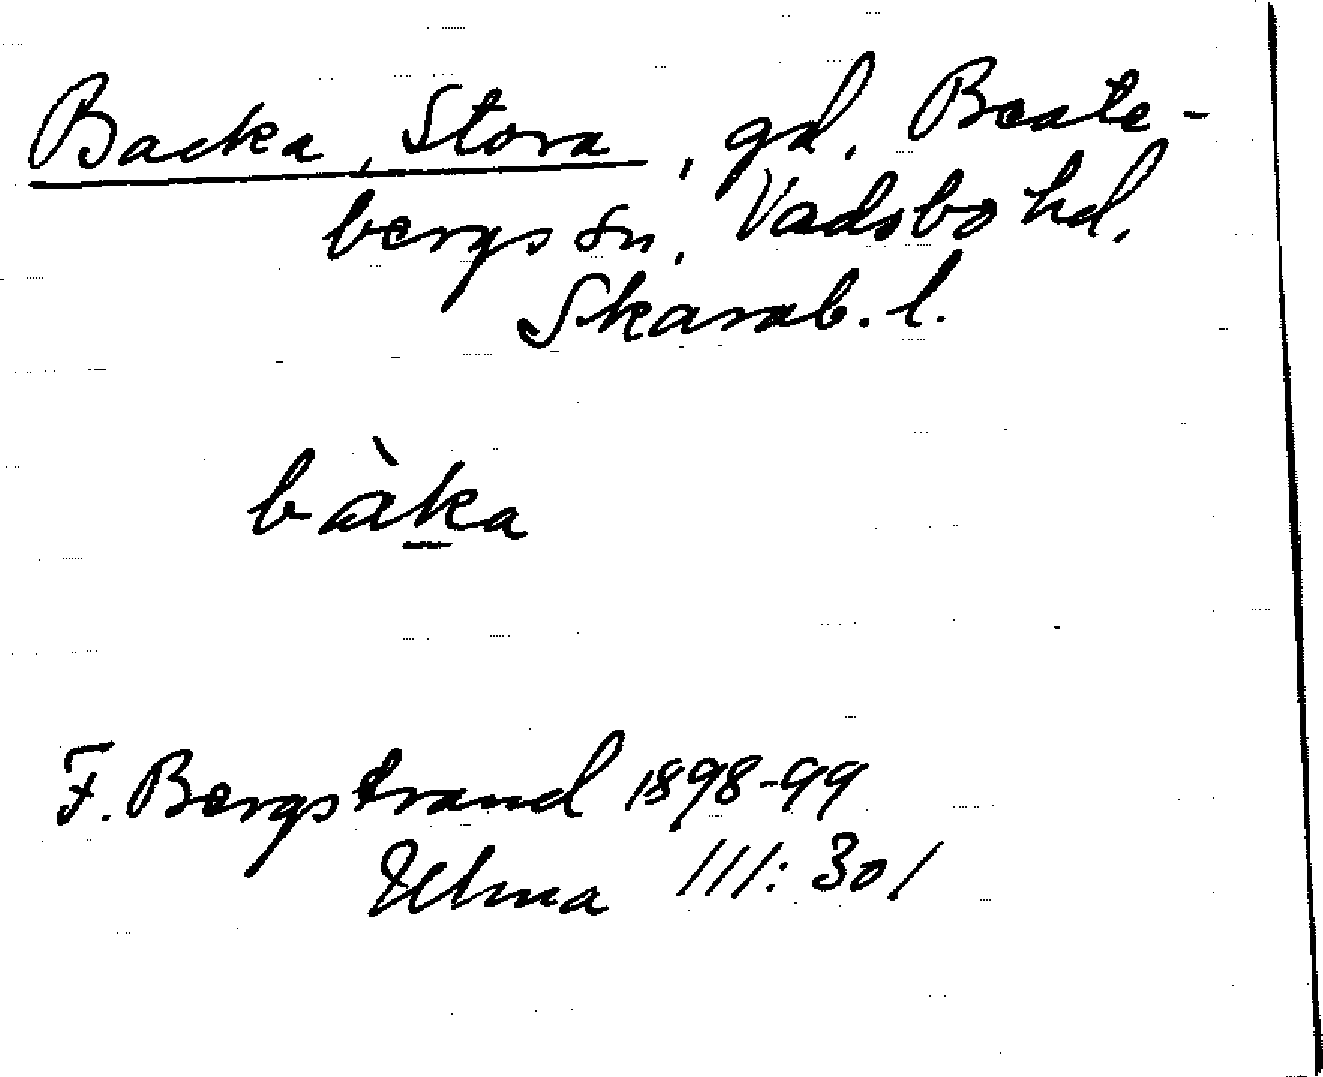 Backa, Stora, gd. Beate-
bergs sn, Vadsbo hd,
Skarab. l.
bàka
F. Bergstrand 1898-99
Utma 111:301